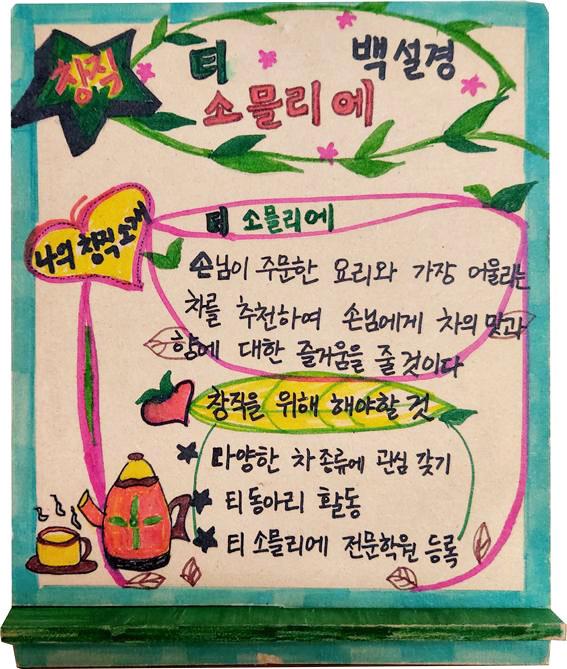 창직
티 백설경
소믈리에
나의 창직 소개
티 소믈리에
손님이 주문한 요리와 가장 어울리는
차를 추천하여 손님에게 차의 맛과
향에 대한 즐거움을 줄 것이다
창직을 위해 해야할 것
★ 다양한 차 종류에 관심 갖기
★ 티 동아리 활동
★ 티 소믈리에 전문학원 등록